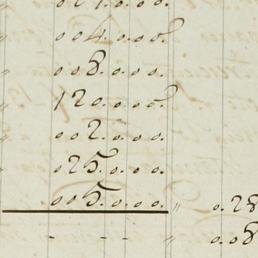 021.0.00.
004.0.00.
008.0.00.
120.0.00.
002.0.00.
025.0.00.
005.0.00. " 0.28
- - - " 0.08